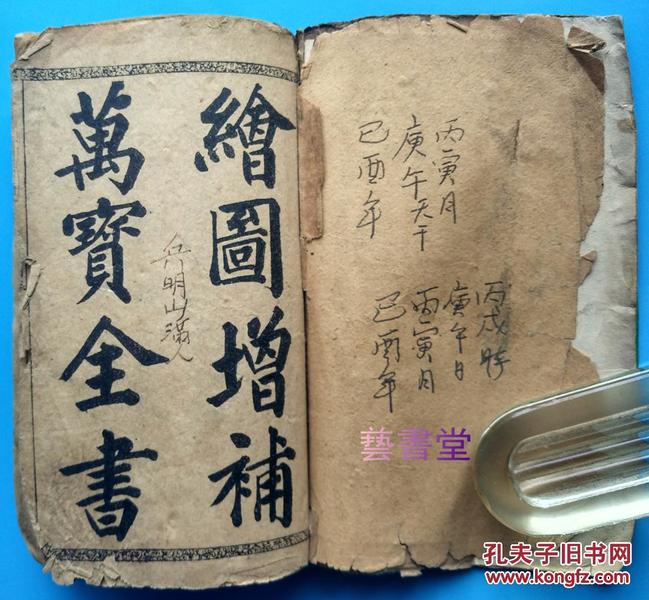 繪圖增補
萬寶全書
明山
丙寅月
庚午天干
己酉年
丙戌時
庚午日
丙寅月
己酉年
藝書堂
孔夫子旧书网
www.kongfz.com